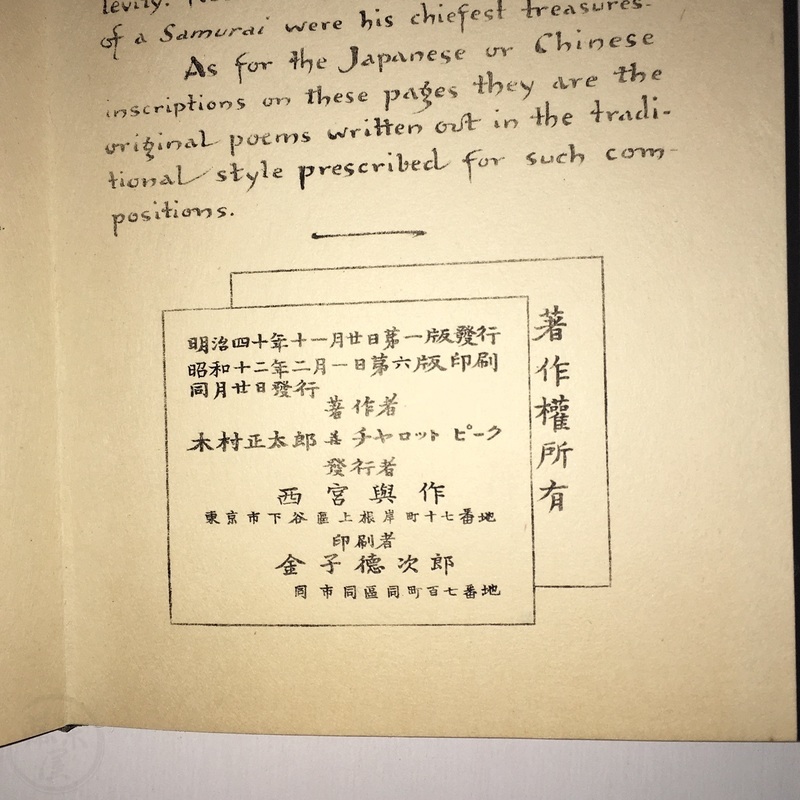 levity.
of a Samurai were his chiefest treasures.
As for the Japanese or Chinese
inscriptions on these pages they are the
original poems written out in the tradi-
tional style prescribed for such com-
positions.
著作權所有
明治四十年十一月廿日第一版發行
昭和十二年二月一日第六版印刷
同月廿日發行
著作者
木村正太郎 チヤロット ピーク
發行者
西宮與作
東京市下谷區上根岸町十七番地
印刷者
金子德次郎
同市同區同町百七番地